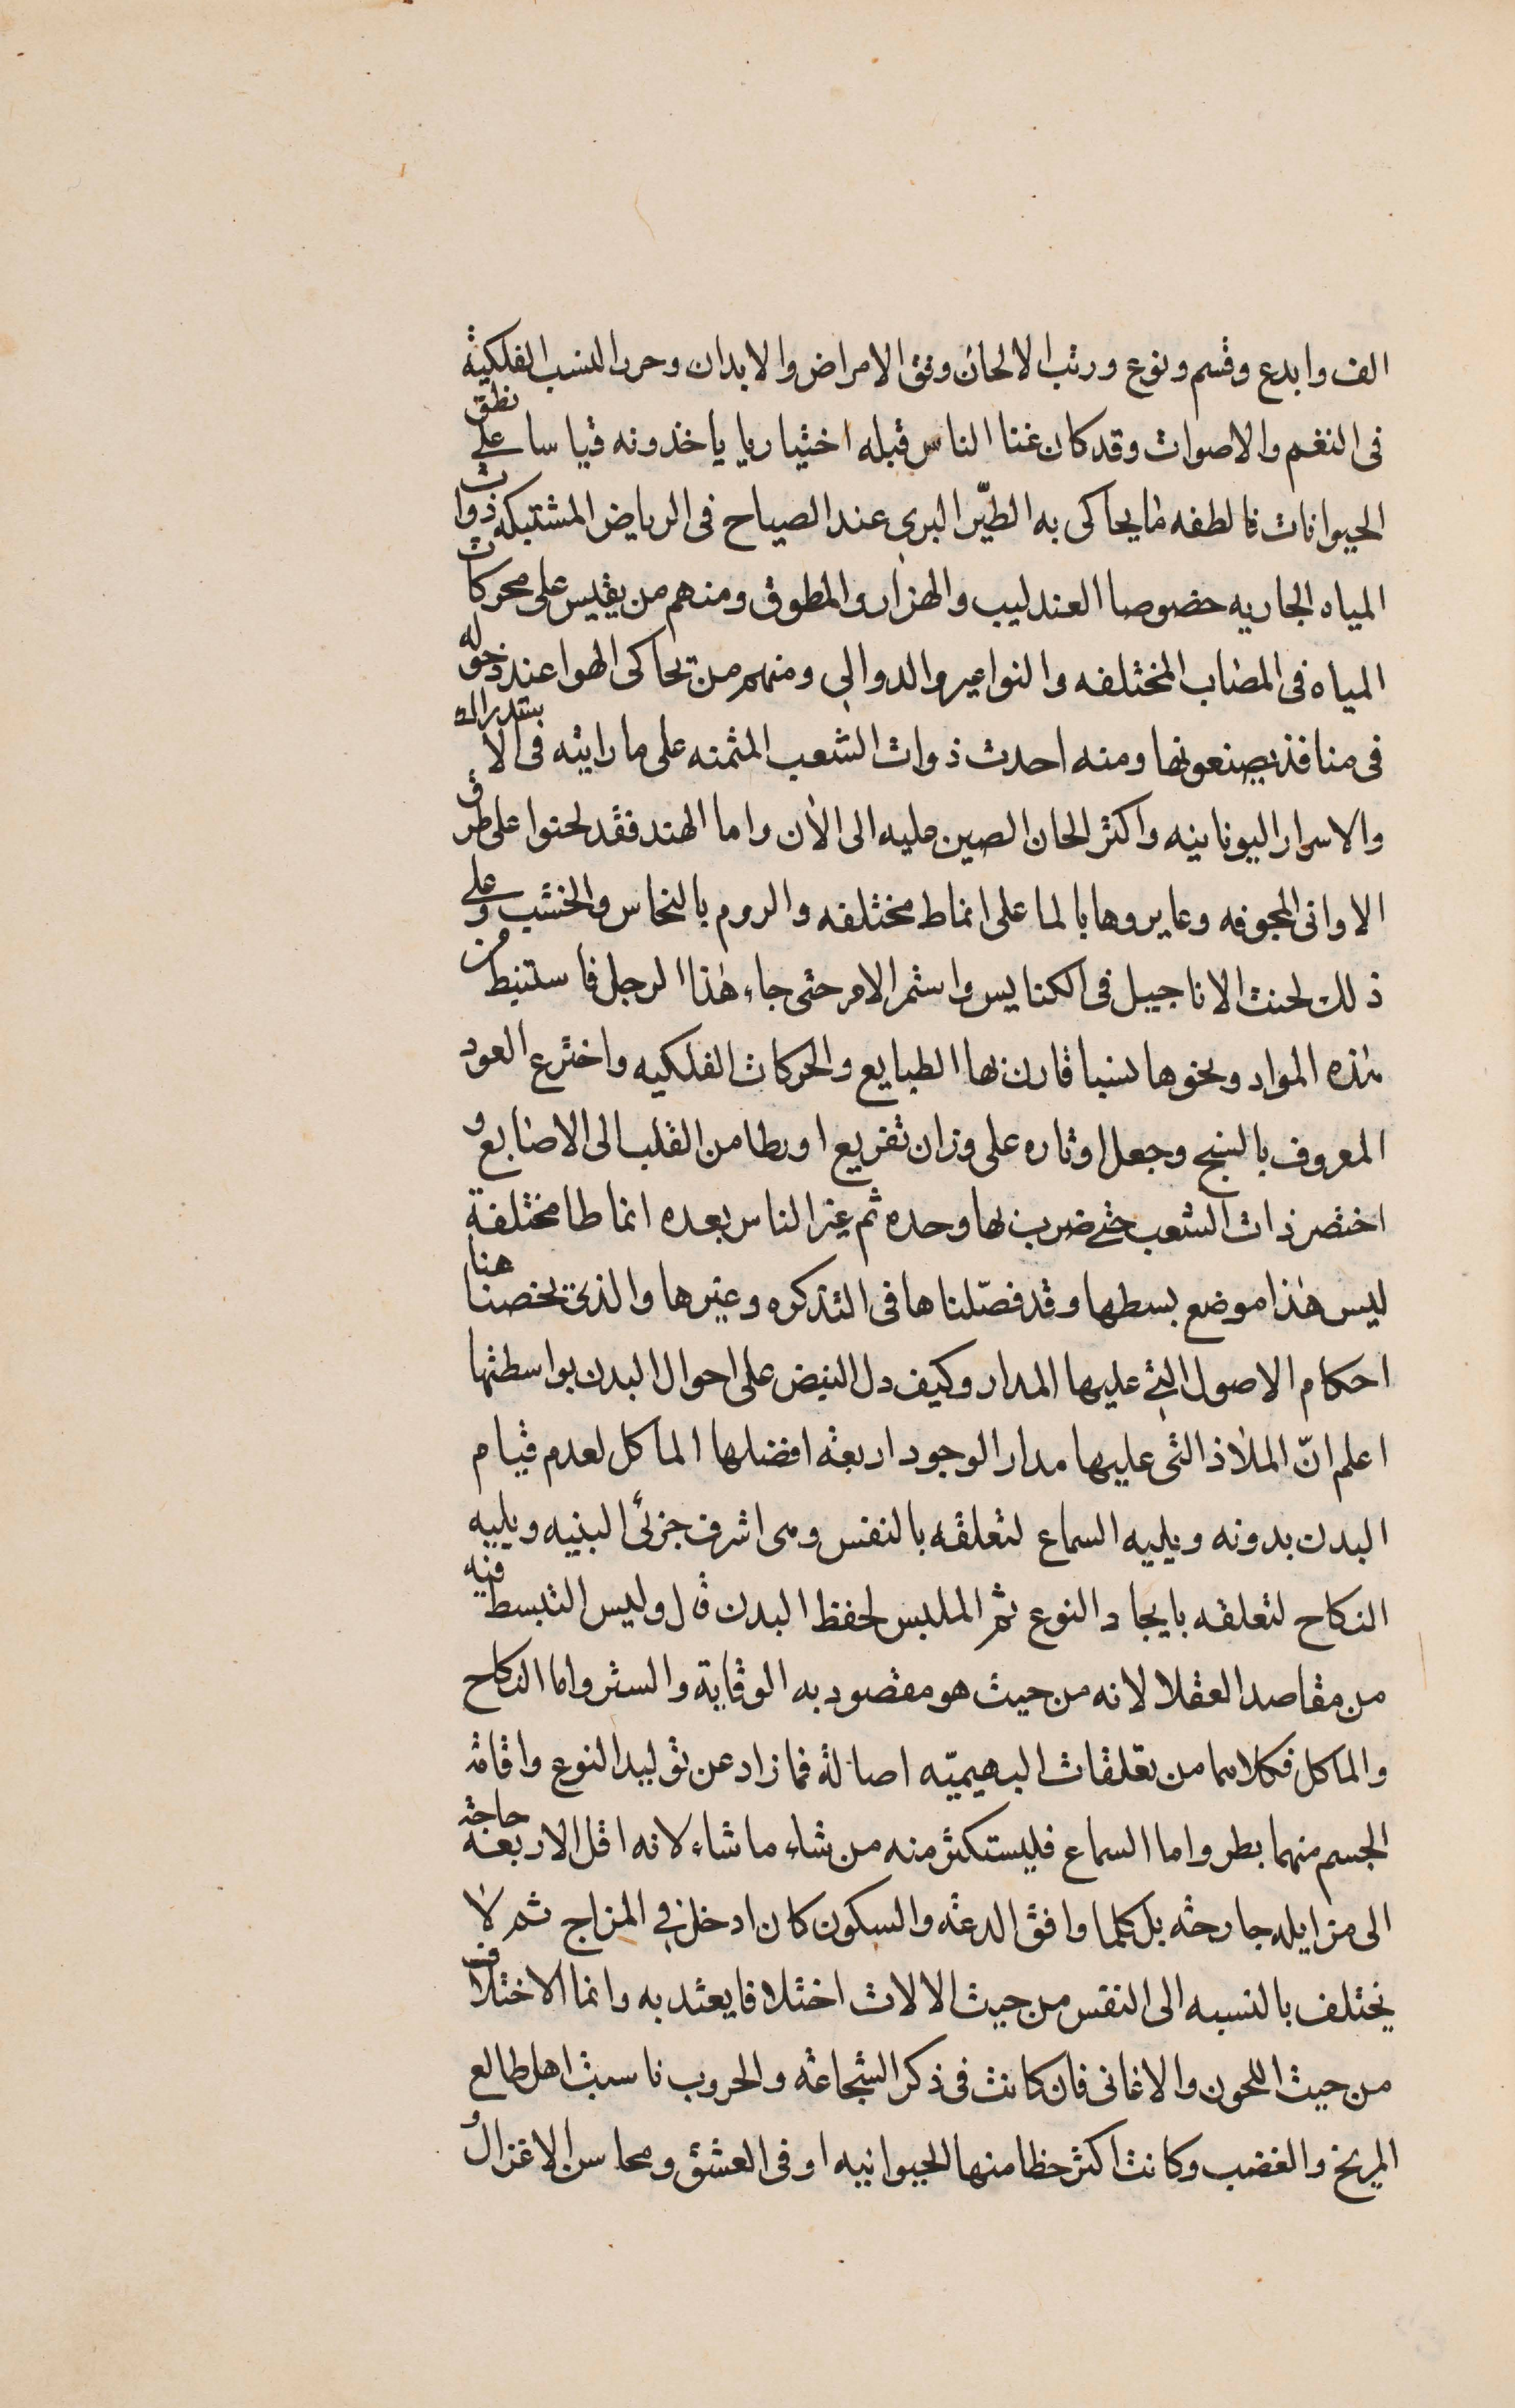 الف وابدع وقسم ونوع ورتب الالحان وفق الامراض والابدان وحرر النسب الفلكية
فى النغم والاصوات وقد كان غنا الناس قبله اختياريا ياخذونه قياسا على نطق
الحيوانات فالطفه ما يحاكى به الطيّر البرى عند الصياح فى الرياض المشتبكه ذوات
المياه الجاريه خصوصا العندليب والهزار والمطوق ومنهم من يقيس على محركات
المياه فى المصاب المختلفه والنواعير والدوالى ومنهم من يحاكى الهوا عند دخوله
فى منافذ يصنعونها ومنه احدث ذوات الشعب المثمنه على ما رايته فى الا
والاسرار اليونانيه واكثر الحان الصين عليه الى الآن واما الهند فقد لحنوا على طرق
الاوانى المجوفه وعايروها بالما على انماط مختلفه والروم بالنحاس والخشب وعلى
ذلك لحنت الاناجيل فى الكنايس واستمر الامر حتى جاء هذا الرجل فاستنبط من
هذه المواد ونحوها نسبا قارن بها الطبايع والحركات الفلكيه واخترع العود
المعروف بالسنج وجعل اوتاره على وزان تفريع اورطا من القلب الى الاصابع و
اختصر ذات الشعب حتى ضرب بها وحده ثم غير الناس بعده انماطا مختلفة
ليس هذا موضع بسطها وقد فصّلناها فى التذكره وغيرها والذى يخصنا هنا
احكام الاصول التى عليها المدار وكيف دل النبض على احوال البدن بواسطتها
اعلم انّ الملاذ التى عليها مدار الوجود اربعة افضلها الماكل لعدم قيام
البدن بدونه ويليه السماع لتعلقه بالنفس وهى اشرف جزئى البنيه ويليه
النكاح لتعلقه بايجاد النوع ثم الملبس لحفظ البدن قل وليس التبسط فيه
من مقاصد العقلا لانه من حيث هو مقصود به الوقاية والستر واما النكاح
والماكل فكلاهما من تعلقات البهيميّه اصالة فما زاد عن توليد النوع واقامة
الجسم منهما بطر واما السماع فليستكثر منه من شاء ما شاء لانه اقل الاربعة حاجة
الى مزايله جارحته بل كلما وافق الدعة والسكون كان ادخل فى المزاج ثم لا
يختلف بالنسبه الى النفس من حيث الالات اختلافا يعتد به وانما الاختلاف
من حيث اللحون والاغانى فان كانت فى ذكر الشجاعة والحروب ناسبت اهل طالع
المريخ والغضب وكانت اكثر حظا منها الحيوانيه او فى العشق ومحاسن الاغزال و